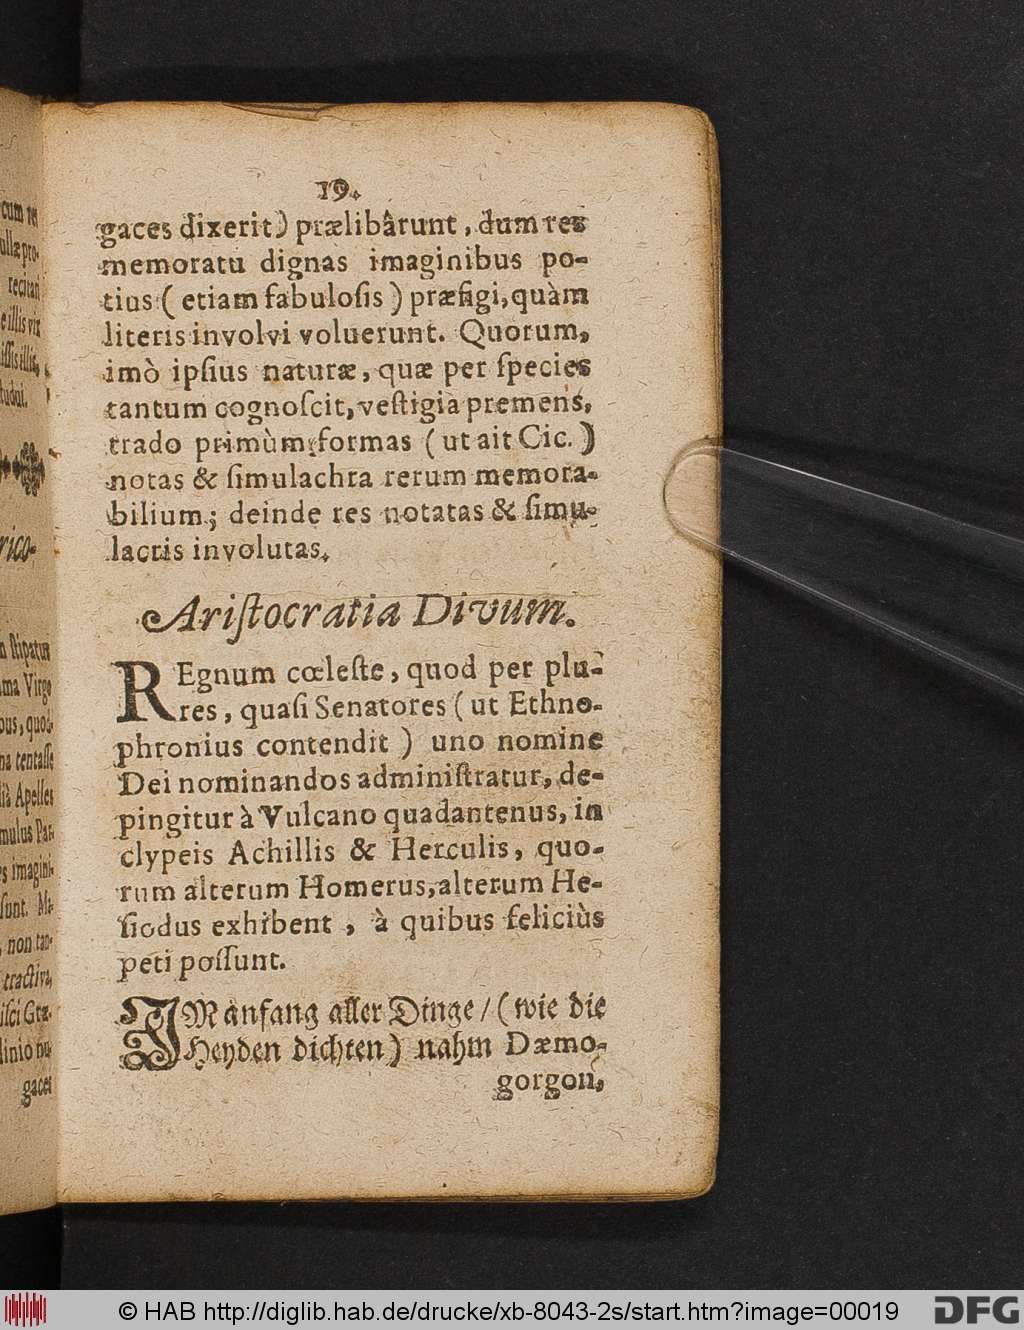 19.
gaces dixerit) prælibârunt, dum res
memoratu dignas imaginibus po-
tius (etiam fabulosis) præfigi, quàm
literis involvi voluerunt. Quorum,
imò ipsius naturæ, quæ per species
tantum cognoscit, vestigia premens,
trado primùm formas (ut ait Cic.)
notas & simulachra rerum memora-
bilium; deinde res notatas & simu-
lacris involutas.
Aristocratia Divum.
REgnum cœleste, quod per plu-
res, quasi Senatores (ut Ethno-
phronius contendit) uno nomine
Dei nominandos administratur, de-
pingitur à Vulcano quadantenus, in
clypeis Achillis & Herculis, quo-
rum alterum Homerus, alterum He-
siodus exhibent, à quibus feliciùs
peti possunt.
IM anfang aller Dinge / (wie die
Heyden dichten) nahm Dæmo-
gorgon,
cum re
ullæ pro-
recitari
e illis vix
tudui.
rico-
n Ripatus
ma Virgo
ous, quod
na tentasse
lià Apelles
mulus Par-
s imagini-
sunt. Ma-
, non tan-
tractiva,
isci Græ-
linio nu-
gaces
© HAB http://diglib.hab.de/drucke/xb-8043-2s/start.htm?image=00019
DFG